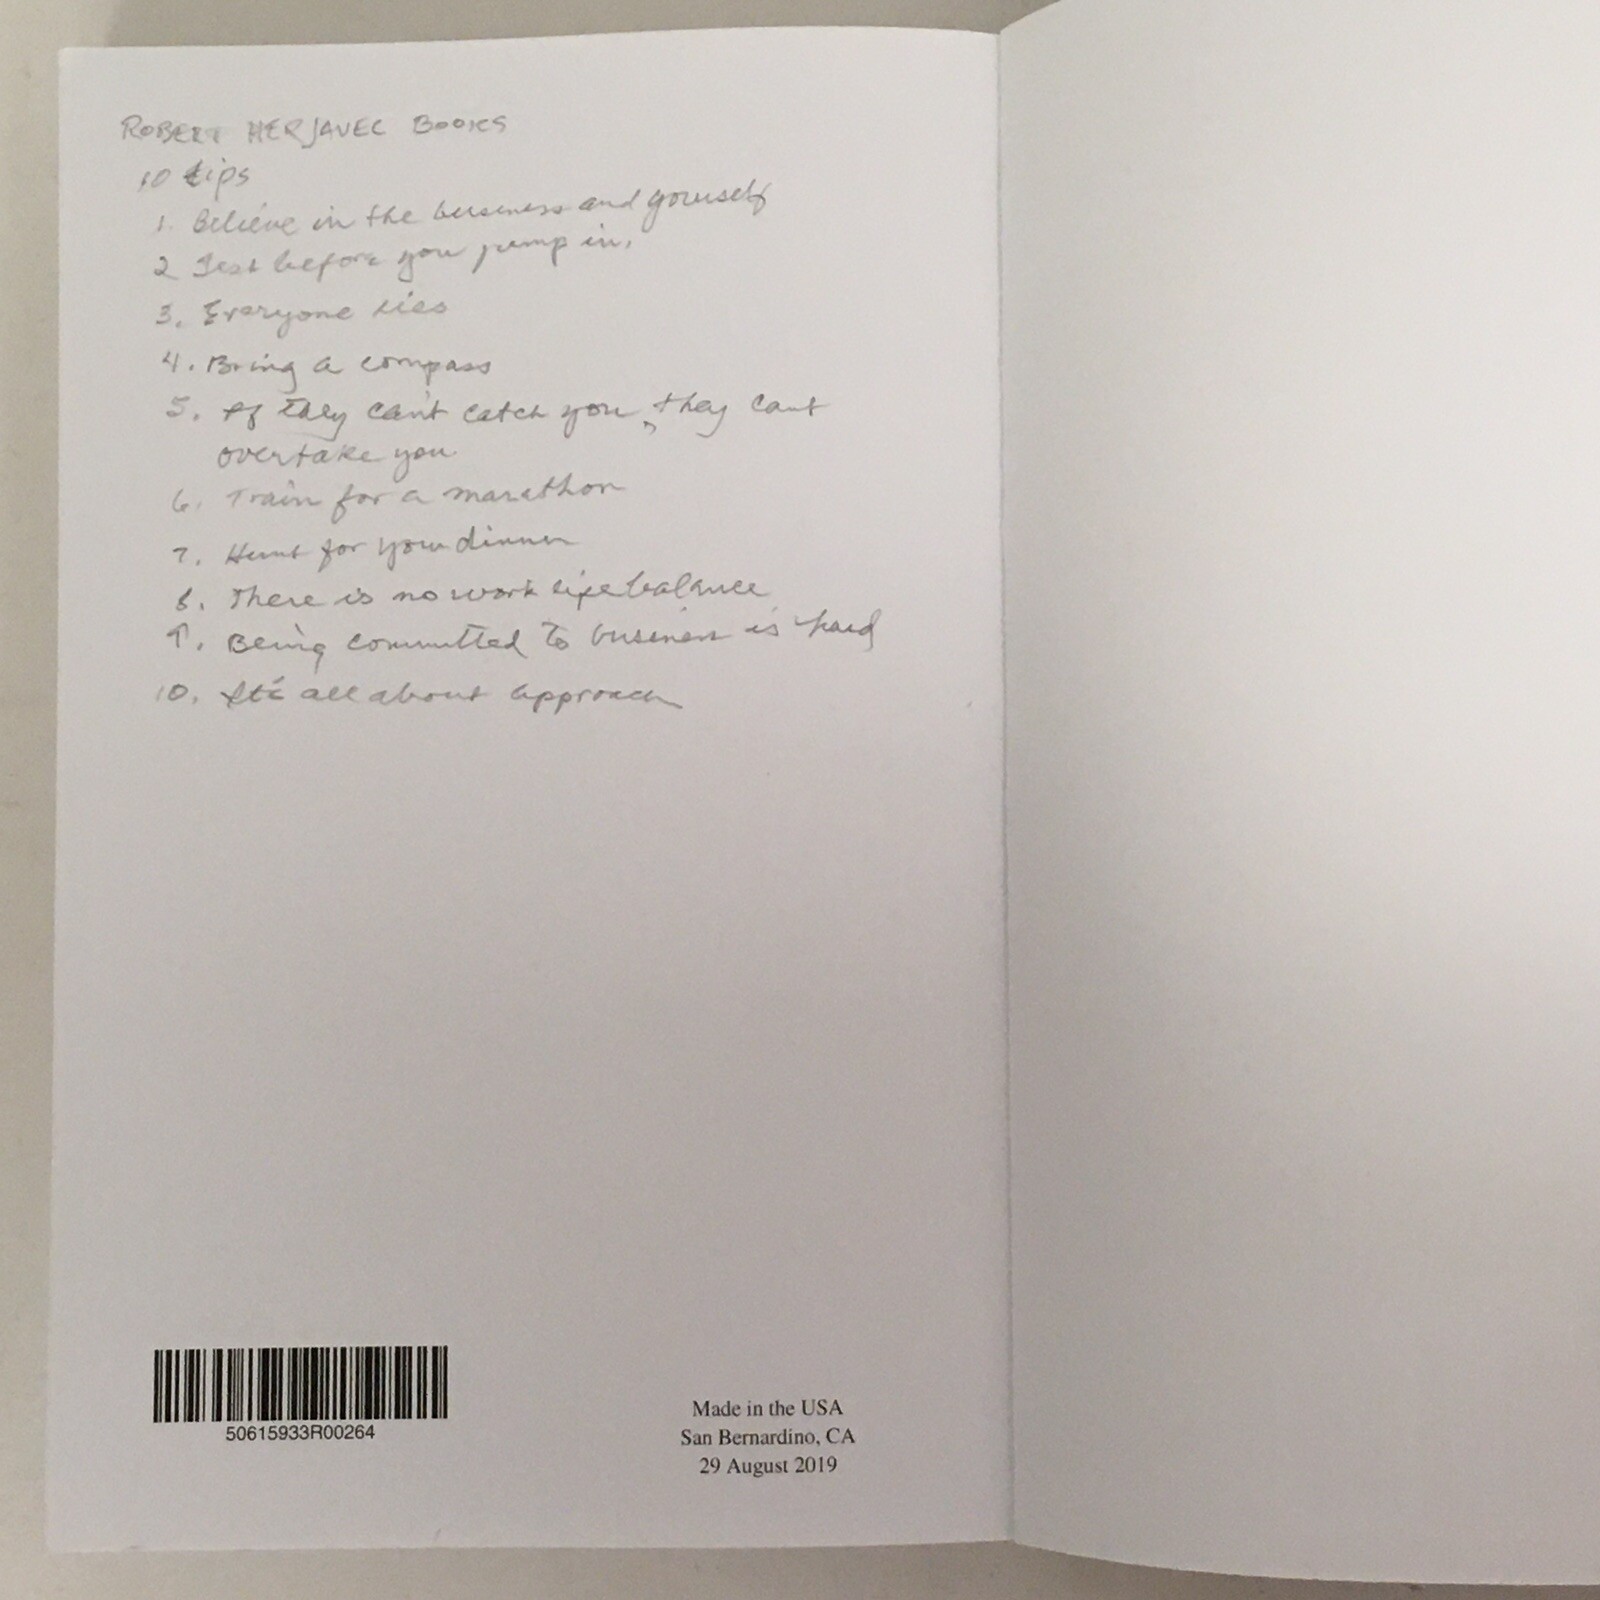 ROBERT HERJAVEC BOOKS
10 tips
1. Believe in the business and yourself
2 Test before you jump in.
3. Everyone lies
4. Bring a compass
5. If they can't catch you, they cant
overtake you.
6. Train for a marathon
7. Hunt for your dinner
8. There is no work life balance
9. Being committed to business is hard
10. It's all about approach
50615933R00264
Made in the USA
San Bernardino, CA
29 August 2019